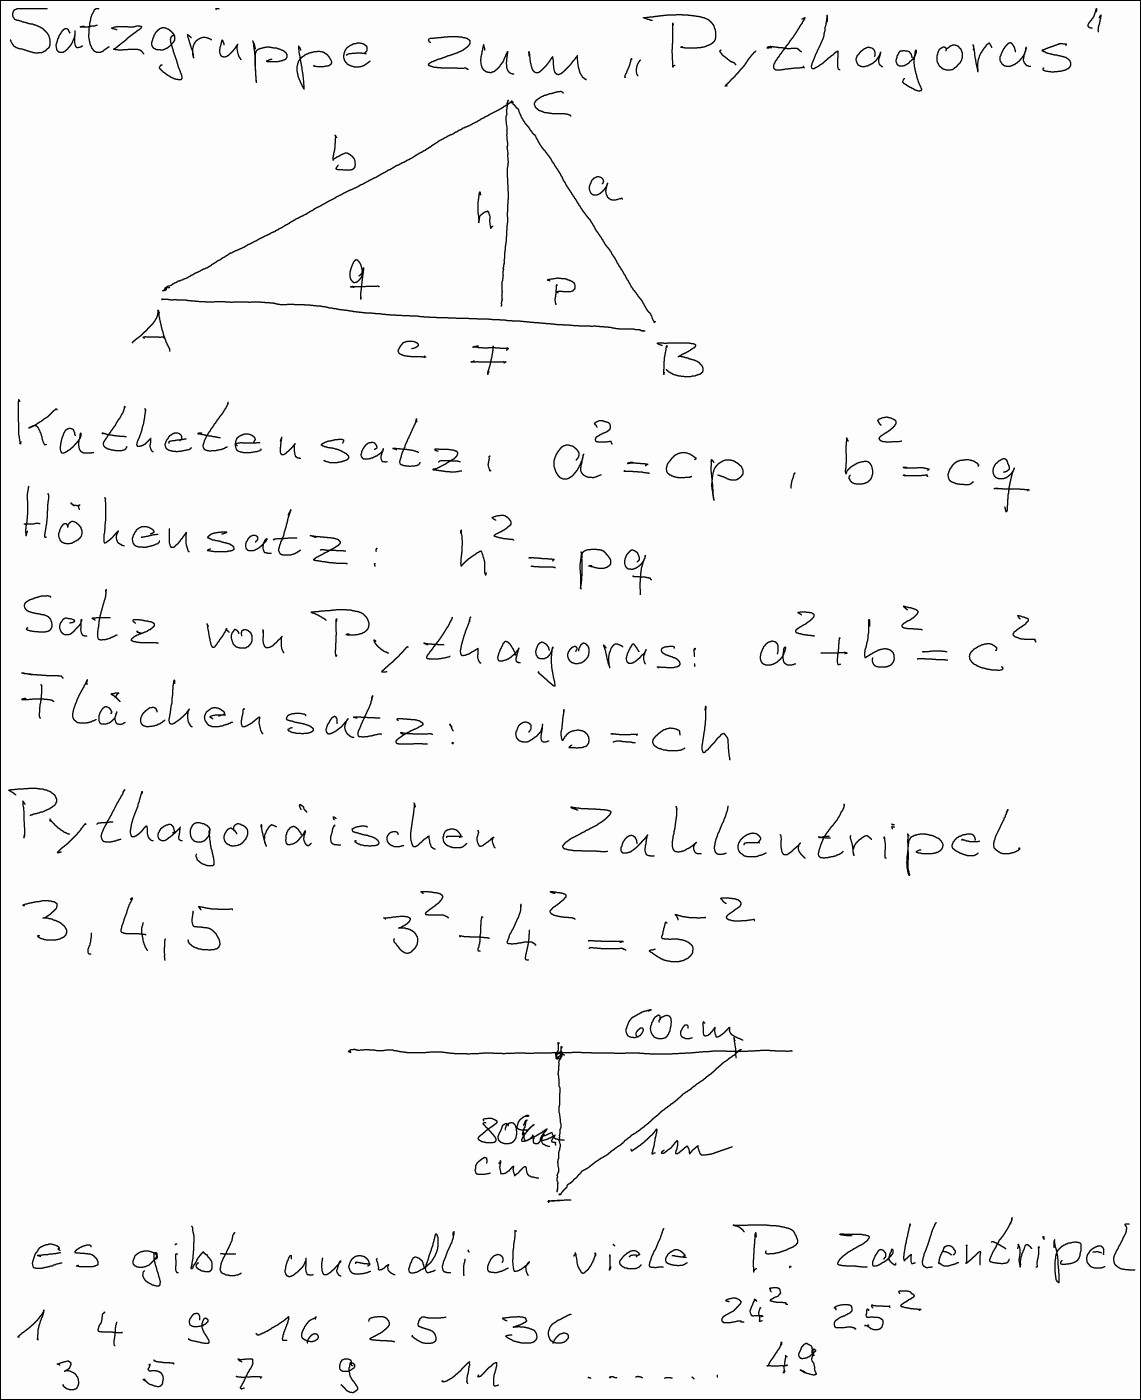 Satzgruppe zum „Pythagoras“
C
b
a
h
q
p
A
c F
B
Kathetensatz: a²=cp, b²=cq
Höhensatz: h²=pq
Satz von Pythagoras: a²+b²=c²
Flächensatz: ab=ch
Pythagoräischen Zahlentripel
3,4,5 3²+4²=5²
60cm
80
cm
1m
es gibt unendlich viele P. Zahlentripel
1 4 9 16 25 36 24² 25²
3 5 7 9 11 ....... 49